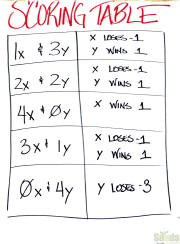 SCORING TABLE
1x & 3y
X LOSES -1
Y WINS 1
2x & 2y
X LOSES -1
Y WINS 1
4x & 0y
X WINS 1
3x & 1y
X LOSES -1
Y WINS 1
0x & 4y
Y LOSES -3
Seeds